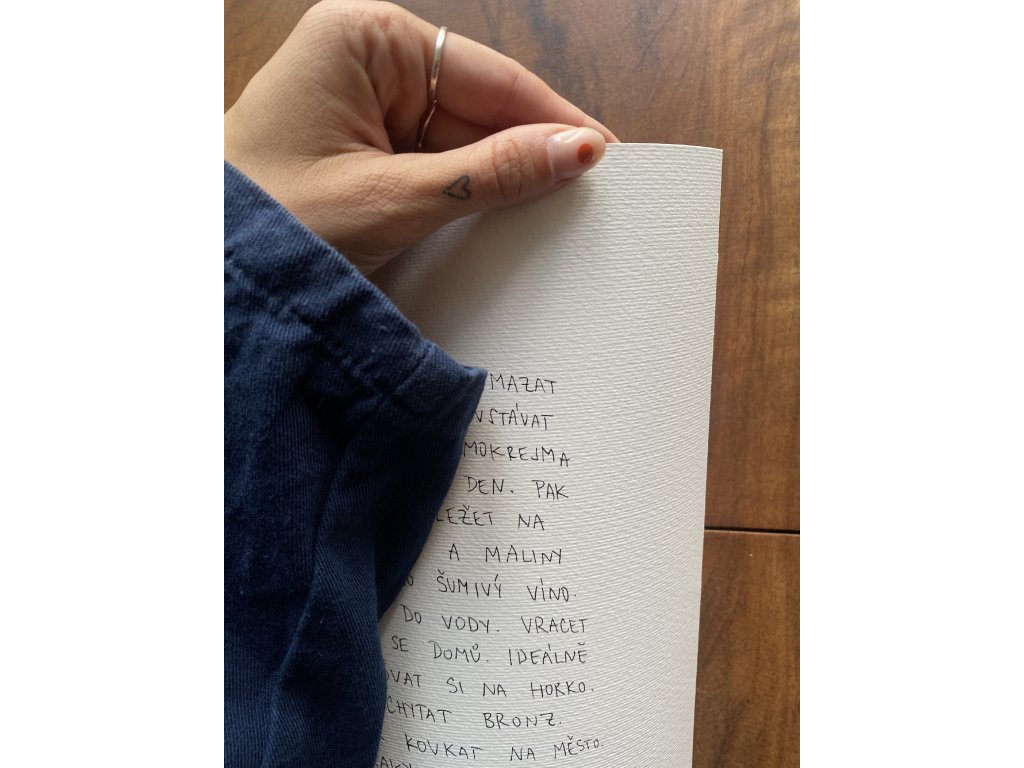 MAZAT
VSTÁVAT
MOKREJMA
DEN. PAK
LEŽET NA
A MALINY
ŠUMIVÝ VÍNO.
DO VODY. VRACET
SE DOMŮ. IDEÁLNĚ
SI NA HORKO.
CHYTAT BRONZ.
KOUKAT NA MĚSTO.